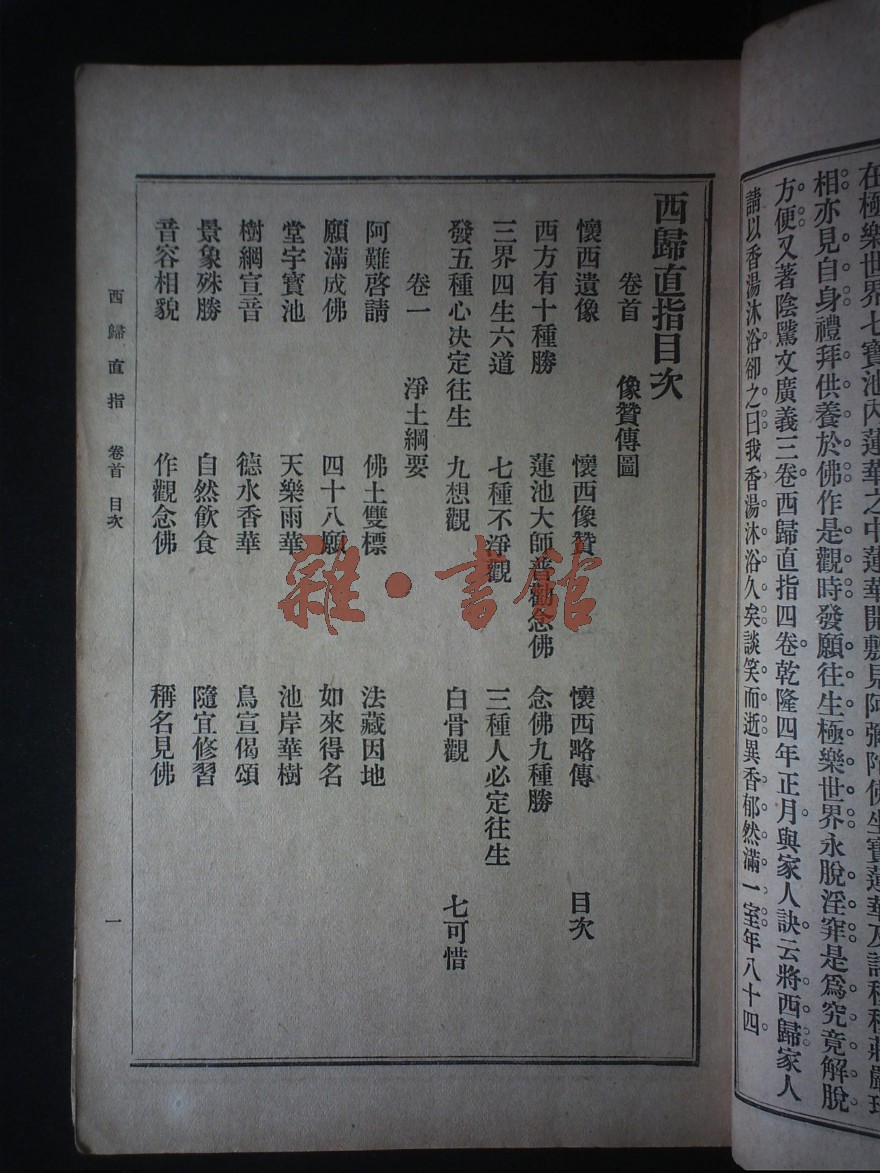 在極樂世界七寶池內蓮華之中蓮華開敷見阿彌陀佛坐寶蓮華及諸種種莊嚴
相亦見自身禮拜供養於佛作是觀時發願往生極樂世界永脫淫穽是爲究竟解脫
方便又著陰騭文廣義三卷西歸直指四卷乾隆四年正月與家人訣云將西歸家人
請以香湯沐浴卻之曰我香湯沐浴久矣談笑而逝異香郁然滿一室年八十四
西歸直指目次
卷首 像贊傳圖
懷西遺像 懷西像贊 懷西略傳 目次
西方有十種勝 蓮池大師普勸念佛 念佛九種勝
三界四生六道 七種不淨觀 三種人必定往生
發五種心決定往生 九想觀 白骨觀 七可惜
卷一 淨土綱要
阿難啓請 佛土雙標 法藏因地
願滿成佛 四十八願 如來得名
堂宇寶池 天樂雨華 池岸華樹
樹網宣音 德水香華 鳥宣偈頌
景象殊勝 自然飲食 隨宜修習
音容相貌 作觀念佛 稱名見佛
西歸直指 卷首 目次 一
雜·書館